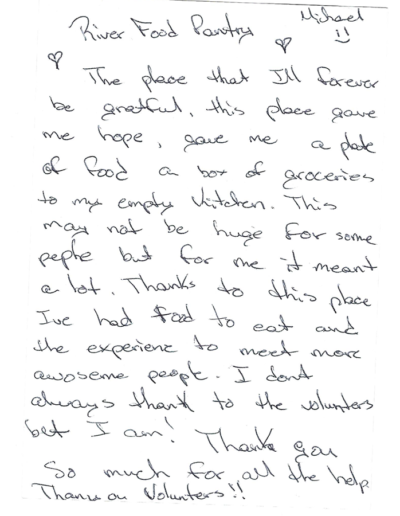 River Food Pantry
Michael
The place that I'll forever
be grateful, this place gave
me hope, gave me a plate
of food a box of groceries
to my empty kitchen. This
may not be huge for some
peple but for me it meant
a lot. Thanks to this place
I've had food to eat and
the experienc to meet more
awoseme people. I dont
always thank to the volunters
bet I am! Thank you
So much for all the help
Thank Volunters!!